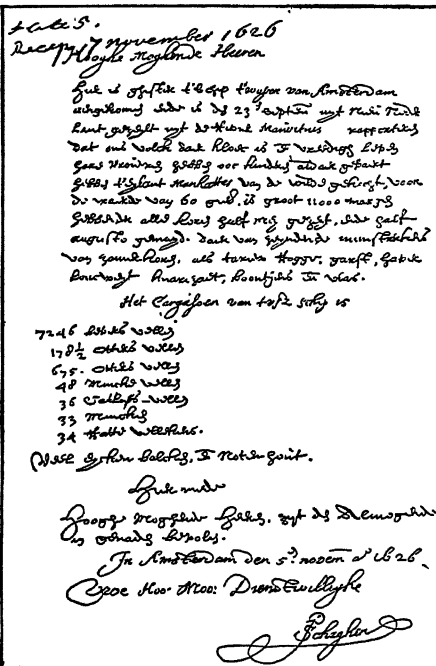 Recep. 7 november 1626
Hooghe Moghende Heeren
hier is ghister t'schip t'wapen van Amsterdam
aengekomen ende is den 23en septem uyt Nieu Neder
lant gezeylt uyt de Rivier Mauritius rapporteert
dat ons volck daer kloec is en vredigh leven
haer vrouwen hebben ooc kinders aldaer gebaert
hebben t'eylant Manhattes van de wilde gekocht, voor
de waerde van 60 guld. is groot 11000 morgen
hebbende alle koren half mey gezayt, ende half
augusto gemayd. daer van zeynden munsterkens
van zomerkoren, als tarwe Rogge, garst, haver
boucweyt knarizaet, boontjens en vlas.
Het Cargasoen van tvsz schip is
7246 bevers vellen
178½ otters vellen
675. otters vellen
48 mincke vellen
36 Catloes vellen
33 mincken
34 Ratte vellekens.
Veel eycken balcken, en Noten hout.
hier mede
Hooghe Moghende heeren, zyt den Almogende
in genade bevolen.
In Amsterdam den 5en novem ao 1626.
Uwe Hoo: Moo: Dienstwillighe
P Schaghen